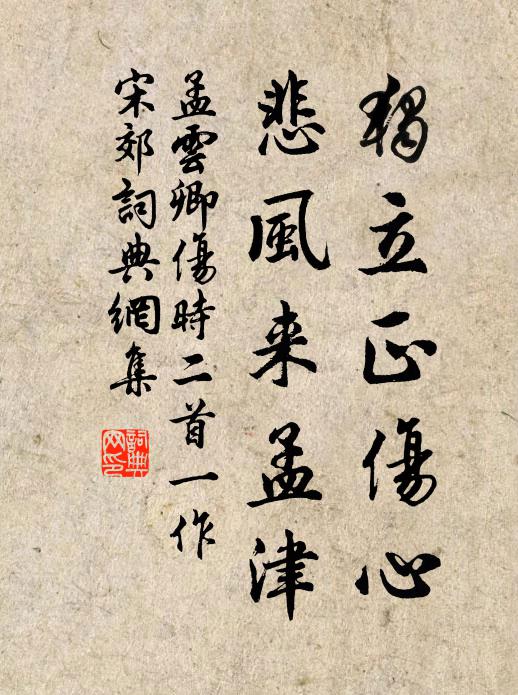 獨立正傷心
悲風来孟津
孟雲卿傷時二首一作
宋郊詞典網集
詞典網印